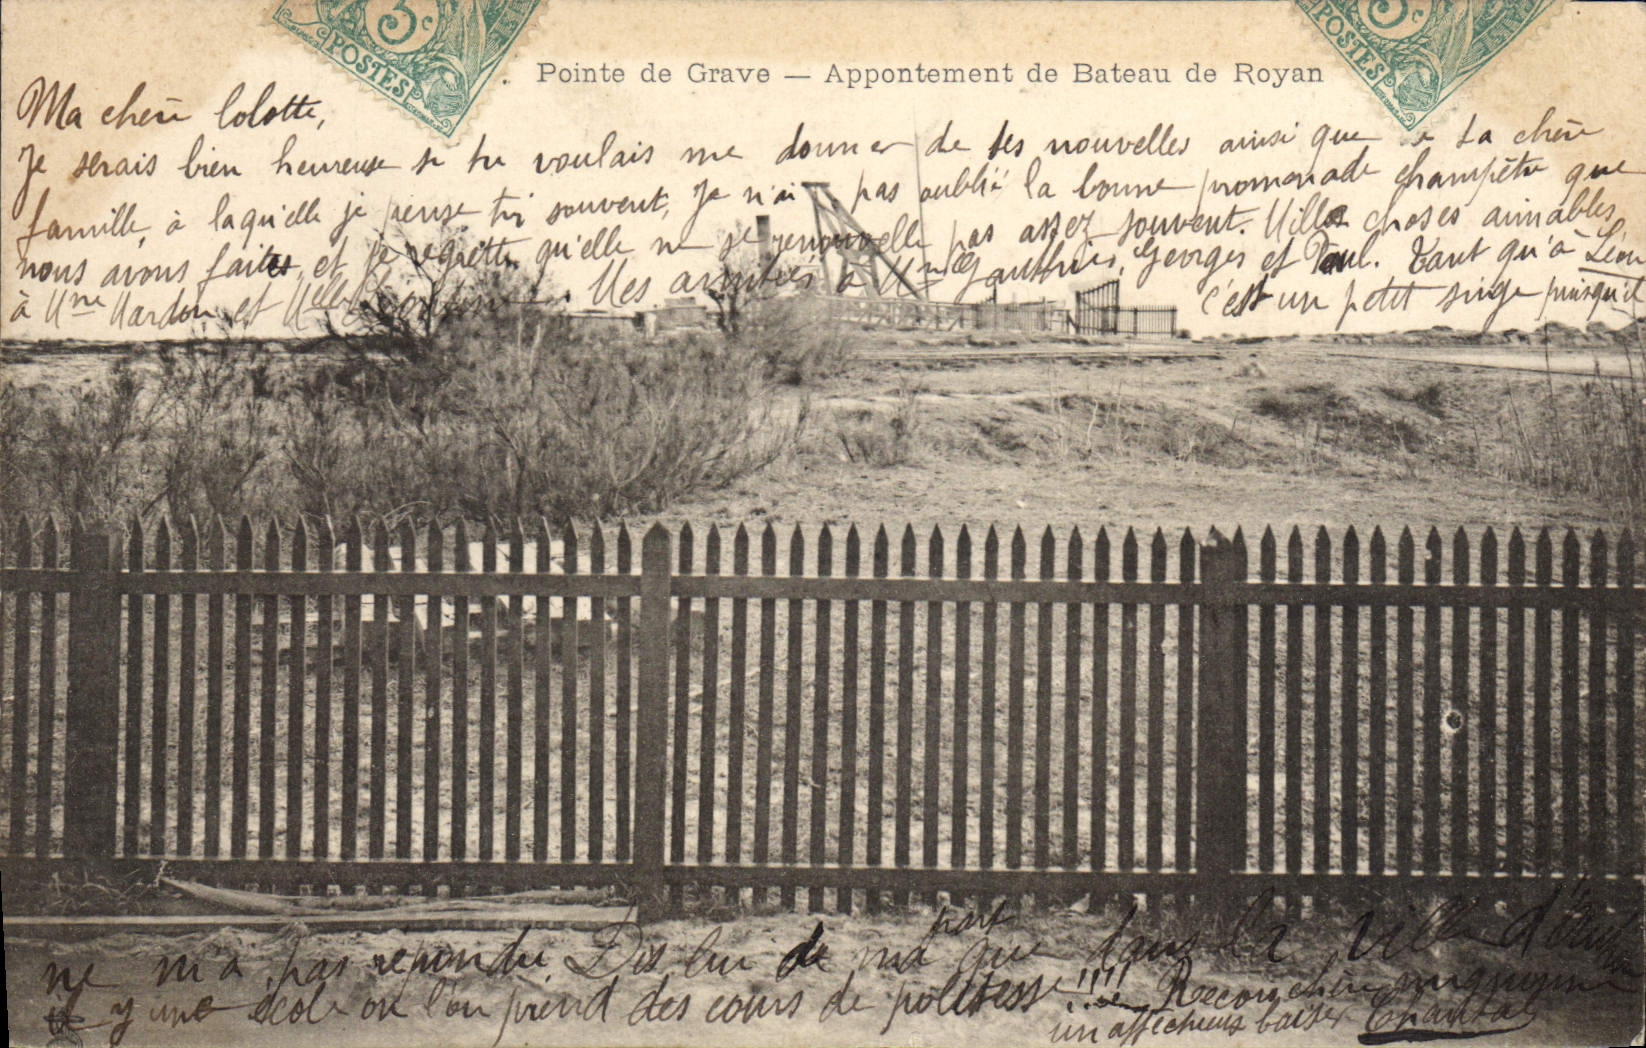 3c
POSTES
3c
POSTES
Pointe de Grave — Appontement de Bateau de Royan
Ma chère Lolotte,
Je serais bien heureuse si tu voulais me donner de tes nouvelles ainsi que ta chère
famille, à laqu'elle je pense très souvent, Je n'ai pas oublié la bonne promenade champêtre que
nous avons faites, et je regrette qu'elle ne se renouvelle pas assez souvent. Milles choses aimables
à Mme Mardon et Melle Mes amitiés à Mme Gauthier, Georges et Paul. Tant qu'à Léon
c'est un petit singe puisqu'il
ne m'a pas répondu. Dis lui de ma part que dans la ville
il y une école ou l'on prend des cours de politesse !!!!
Reçois chère mignonne
un affectueux baiser Chantal